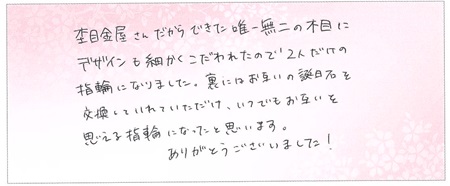 杢目金屋さんだからできた唯一無二の木目に
デザインも細かくこだわれたので2人だけの
指輪になりました。裏にはお互いの誕生石を
交換していれていただけ、いつでもお互いを
思える指輪になったと思います。
ありがとうございました！